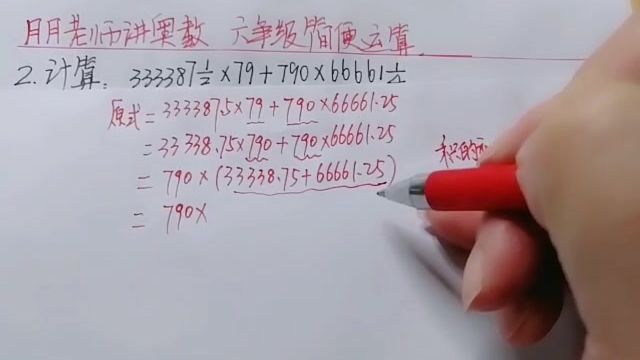 月月老师讲奥数 六年级简便运算
2.计算: 333387½×79+790×66661¼
原式=333387.5×79+790×66661.25
=33338.75×790+790×66661.25
=790×(33338.75+66661.25)
=790×
积的